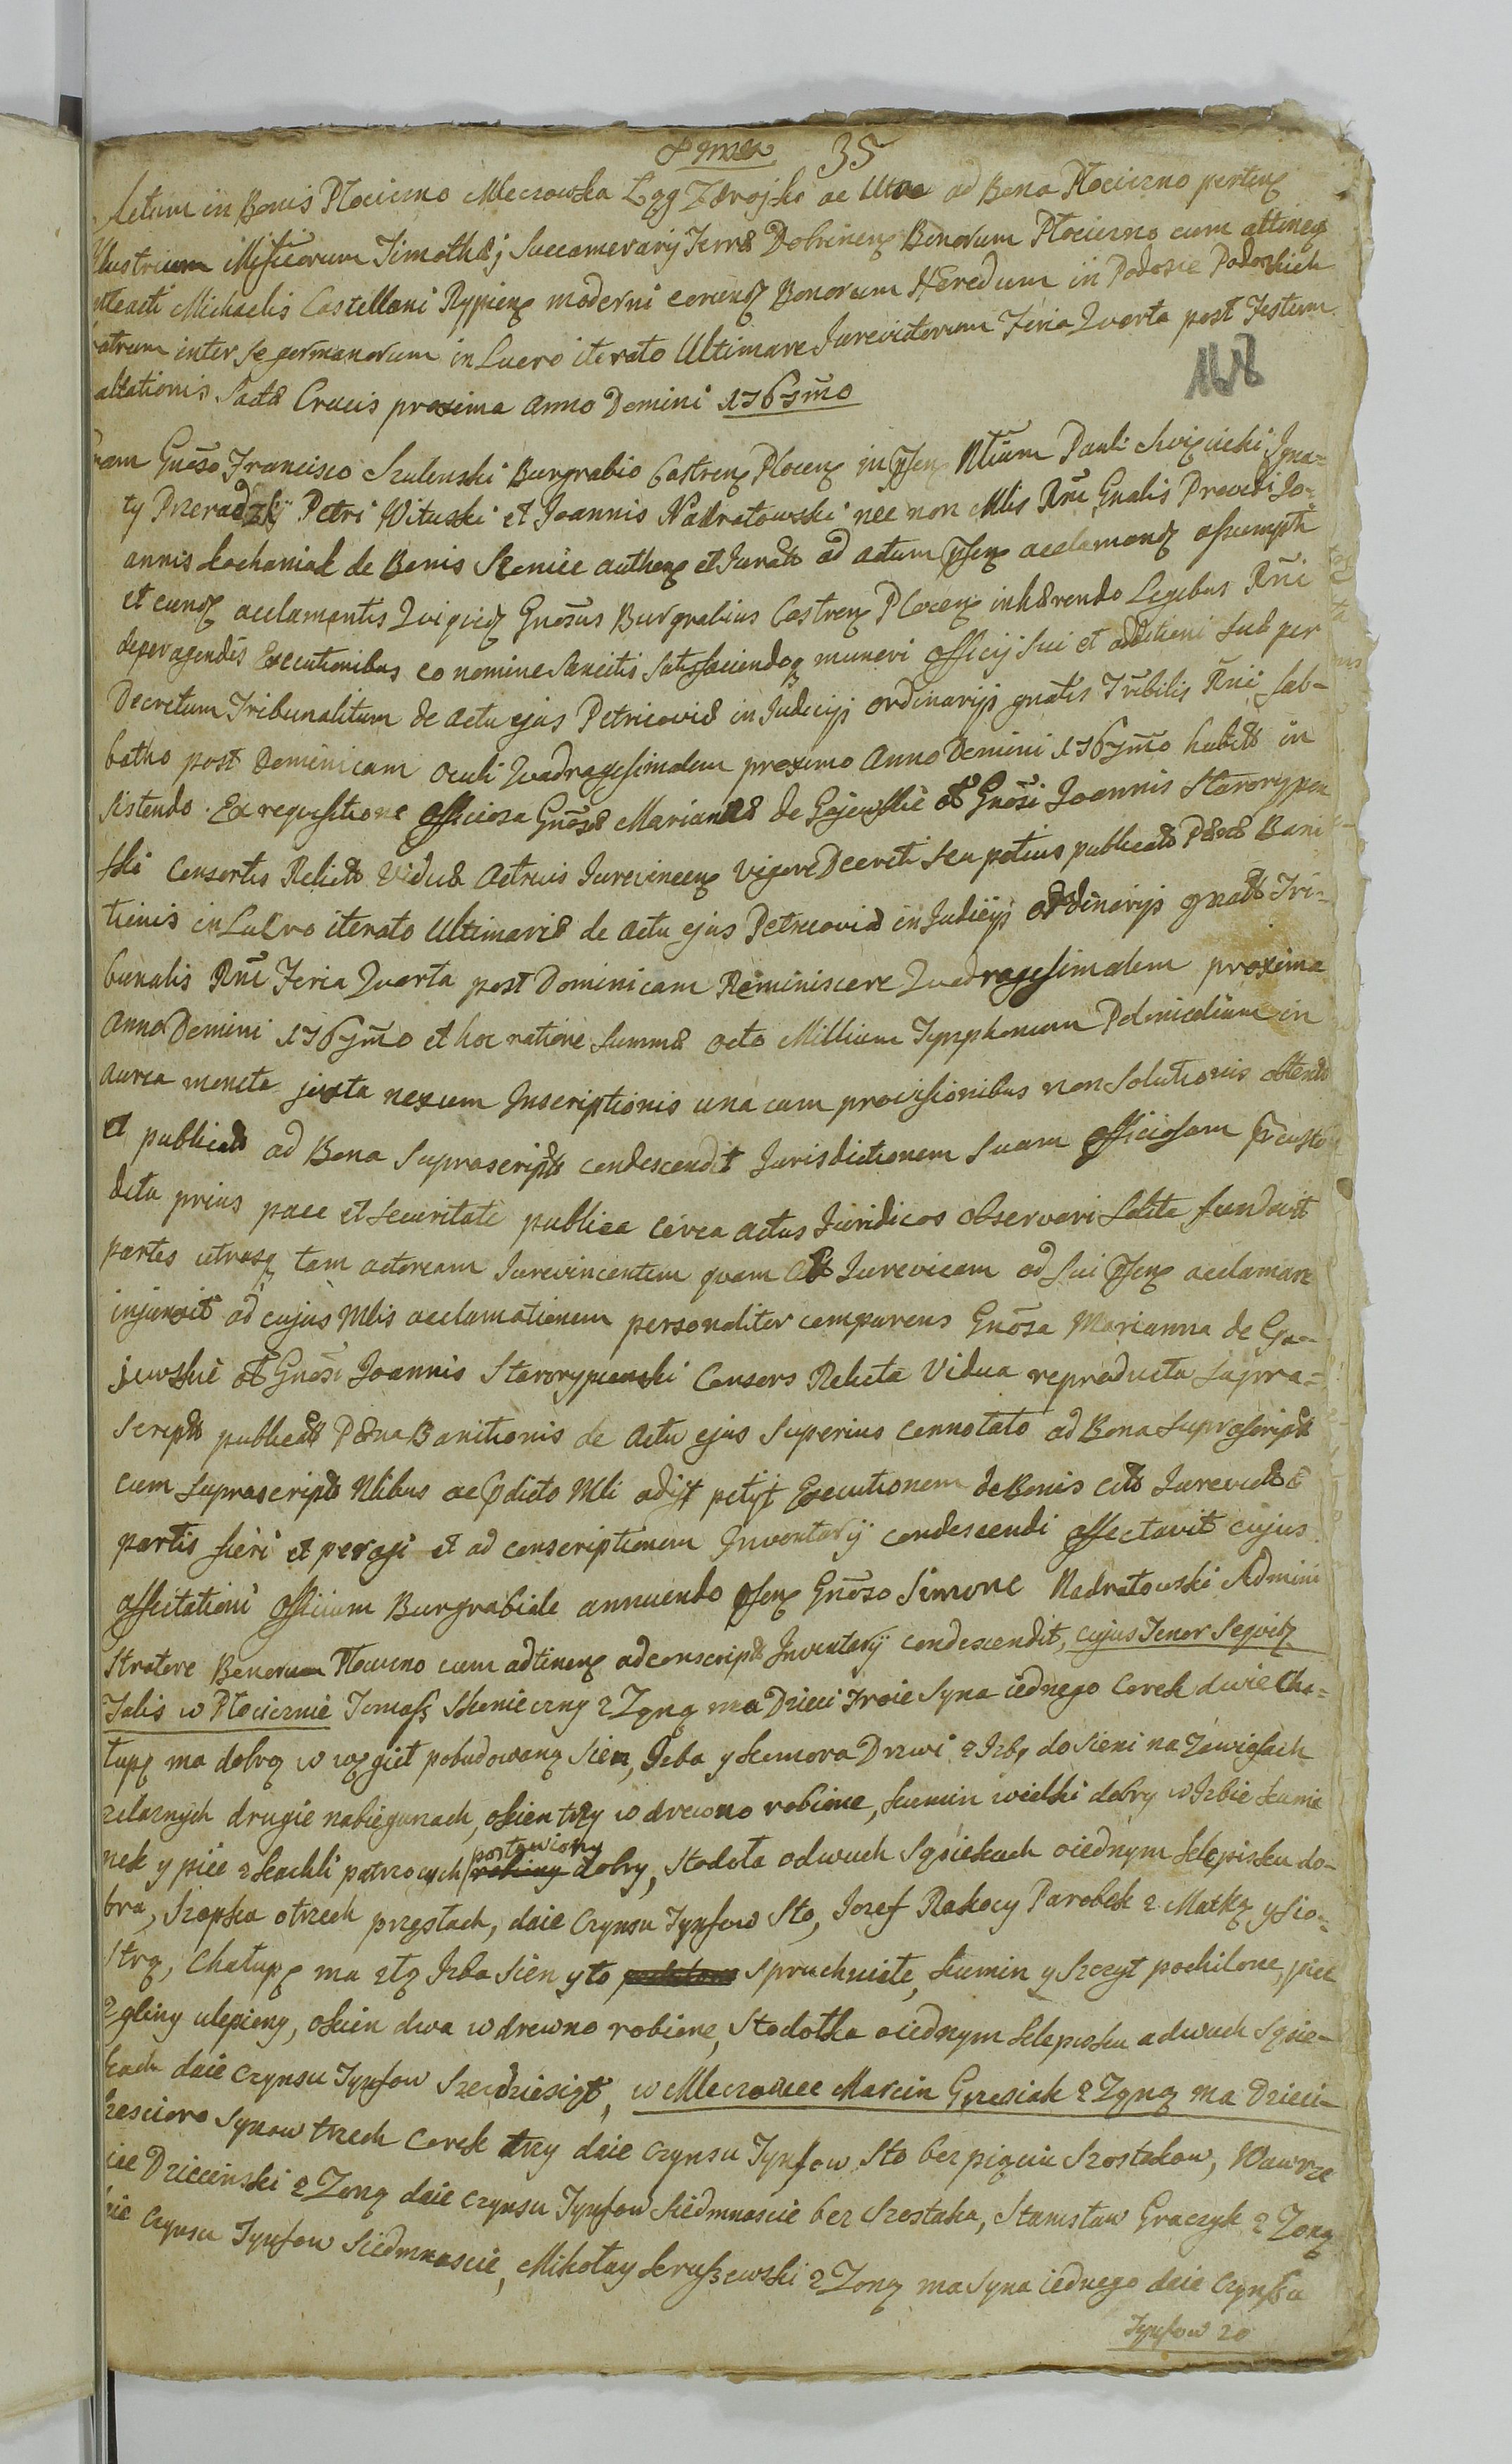 35
Actum in Bonis Płociczno Mleczowka Lgg Zdroyki ac Utae ad Bona Płociczno pertinen
llustrium Mficorum Timothei Succamerarij Terrae Dobrinen Bonorum Płociczno cum attinen
Michaelis Castellani Rypien moderni eorund Bonorum Heredum in Podosie Podoskich
atrum inter se germanorum in Lucro iterato Ultimare Jurevictorum Feria Quarta post Festum
altationis Sactae Crucis proxima Anno Domini 1767mo
168
ram Gnoso Francisco Szulenski Burgrabio Castren Plocen in psen Nlium Pauli Swięcicki Igna-
ty Przeradzkij Petri Wituski et Joannis Nadratowski nec non Mlis Rni Gnalis Providi Jo-
annis Kochaniak de Bonis Skenice authen et Jurati ad actum psen acclamand assumpti
et eund acclamantis Qui quid Gnosus Burgrabius Castren Plocen inhaerendo Legibus Rni
de peragendis Executionibus eo nomine sancitis satisfaciendoq muneri Officij sui et additioni sub per
Decretum Tribunalitium de actu ejus Petricoviae in Judicijs ordinarijs gnalis Tribllis Rni Sab-
batho post Dominicam Oculi Quadragesimalem proximo Anno Domini 1767mo habito in
sistendo. Ex requisitione Officiosa Gnosae Mariannae de Gajewskie olt Gnosi Joannis Starorypin
ski Consortis Relictae Viduae Actricis Jurevincen vigore Decreti seu potius publicatae Paenae Bani
tionis in Lucro iterato Ultimariae de actu ejus Petricoviae in Judicijs ordinarijs gnalis Tri-
bunalis Rni Feria Quarta post Dominicam Reminiscere Quadragesimalem proxima
Anno Domini 1767mo et hoc ratione Summae octo Millium Tymphonum Polonicalium in
aurea moneta juxta nexum Inscriptionis una cum provisionibus non solutionis obtentae
et publicatae ad Bona Suprascripta condescendit Jurisdictionem suam Officiosam praecusto
dita prius pace et securitate publica circa actus Juridicos observari solita fundavit
partes utrasq tam actoream Jurevincentem quam citt Jurevictam ad sui psen acclamare
injunxit ad cujus Mlis acclamationem personaliter comparens Gnosa Marianna de Ga-
jewskie olt Gnosi Joannis Starorypienski Consors Relicta Vidua reproducta supra-
scripta publicata Paena Banitionis de actu ejus superius connotato ad Bona Suprascripta
cum suprascriptis Nlibus ac pdicto Mli adijt petijt Executionem de Bonis citt Jurevictae
partis fieri et peragi et ad conscriptionem Inventarij condescendi affectavit cujus
affectationi Officium Burgrabiale annuendo psen Gnoso Simone Nadratowski Admini
stratore Bonorum Płociczno cum adtinen ad conscript Inventarij condescendit, cujus Tenor Sequitr
Talis w Płocicznie Tomasz Skonieczny z Zoną ma Dzieci Troie Syna iednego Corek dwie Cha-
łupę ma dobrą w węgieł pobudowaną sien, Izba y komora Drzwi z Izby do sieni na Zawiasach
zelaznych drugie na biegunach, okien trzy w drewno robione, kumin wielki dobry w Izbie kumi
nek y piec z kachli patrzących postawiony dobry, Stodoła o dwuch Sąsiekach o iednym klepisku do-
bra, Szopka o trzech przęsłach, daie Czynsu Tynfow Sto, Jozef Rakocy Parobek z Matką y Sio-
strą, Chałupę ma złą Izba Sien y to spruchniałe, kumin y Szczyt pochilone, piec
z gliny ulepiony, okien dwa w drewno robione, Stodołka o iednym klepisku a dwuch Sąsie-
kach daie czynsu Tynfow Szesdziesiąt, w Mleczowce Marcin Grzesiak z Zoną ma Dzieci
Szescioro Synow trzech Corek trzy daie czynsu Tynfow Sto bez pięciu Szostakow, Wawrze
iec Dziecinski z Zoną daie czynsu Tynfow Siedmnascie bez Szostaka, Stanisław Graczyk z Zoną
aie Czynsu Tynfow Siedmnascie, Mikołay Kruszewski z Zoną ma Syna iednego daie Czynsu
Tynfow 20